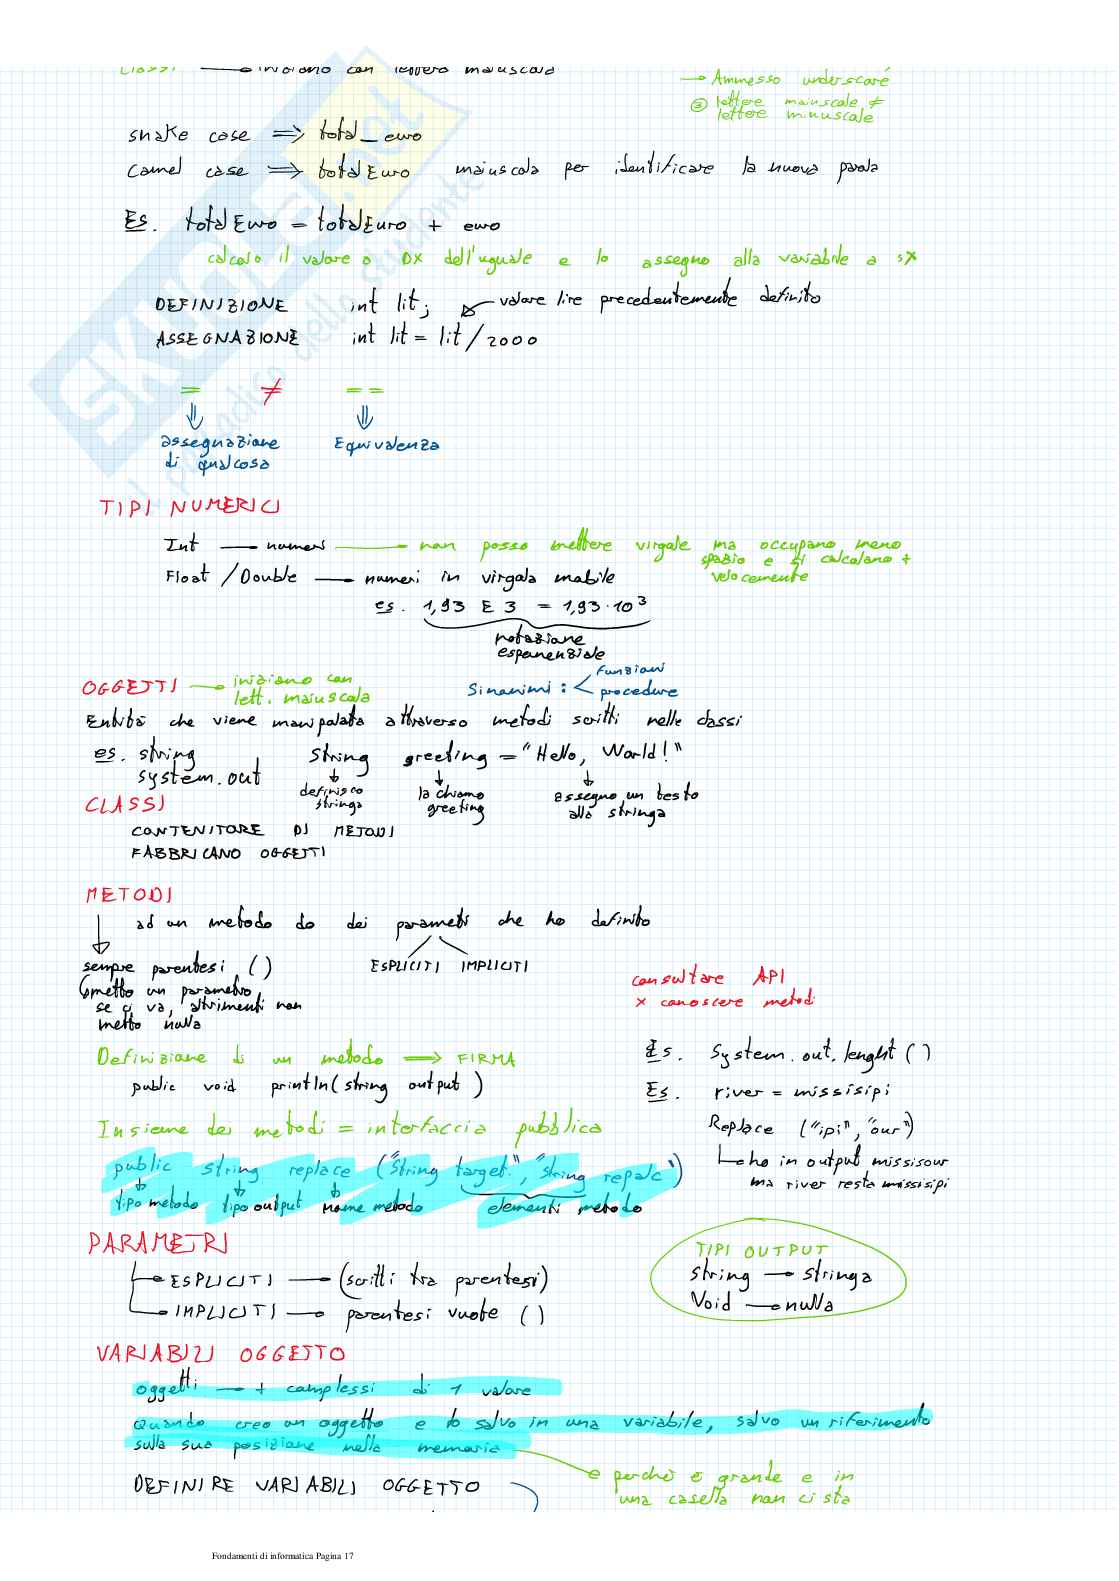 Classi → iniziano con lettera maiuscola
→ Ammesso underscore
③ lettere maiuscole ≠
lettere minuscole
snake case ⇒ total_euro
camel case ⇒ totalEuro maiuscola per identificare la nuova parola
Es. totalEuro = totalEuro + euro
calcolo il valore a DX dell'uguale e lo assegno alla variabile a SX
DEFINIZIONE int lit; ← valore lire precedentemente definito
ASSEGNAZIONE int lit = lit/2000
= ≠ ==
assegnazione
di qualcosa
Equivalenza
TIPI NUMERICI
Int — numeri — non posso mettere virgole ma occupano meno
spazio e si calcolano +
velocemente
Float / Double — numeri in virgola mobile
es. 1,93 E 3 = 1,93·10³
notazione
esponenziale
OGGETTI → iniziano con
lett. maiuscola
Sinonimi: < funzioni
procedure
Entità che viene manipolata attraverso metodi scritti nelle classi
es. string
system.out
String greeting = "Hello, World!"
definisco
stringa
la chiamo
greeting
assegno un testo
alla stringa
CLASSI
CONTENITORE DI METODI
FABBRICANO OGGETTI
METODI
ad un metodo do dei parametri che ho definito
ESPLICITI IMPLICITI
sempre parentesi ( )
metto un parametro
se ci va, altrimenti non
metto nulla
consultare API
x conoscere metodi
Definizione di un metodo ⇒ FIRMA
public void println(string output)
Es. System.out.lenght ( )
Es. river = missisipi
Replace ("ipi", "our")
ho in output missisour
ma river resta missisipi
Insieme dei metodi = interfaccia pubblica
public string replace ("String target", "string repalc")
tipo metodo tipo output nome metodo elementi metodo
PARAMETRI
ESPLICITI → (scritti tra parentesi)
IMPLICITI → parentesi vuote ( )
TIPI OUTPUT
string → stringa
Void → nulla
VARIABILI OGGETTO
oggetti → + complessi di 1 valore
Quando creo un oggetto e lo salvo in una variabile, salvo un riferimento
sulla sua posizione nella memoria
perchè è grande e in
una casella non ci sta
DEFINIRE VARIABILI OGGETTO
Fondamenti di informatica Pagina 17